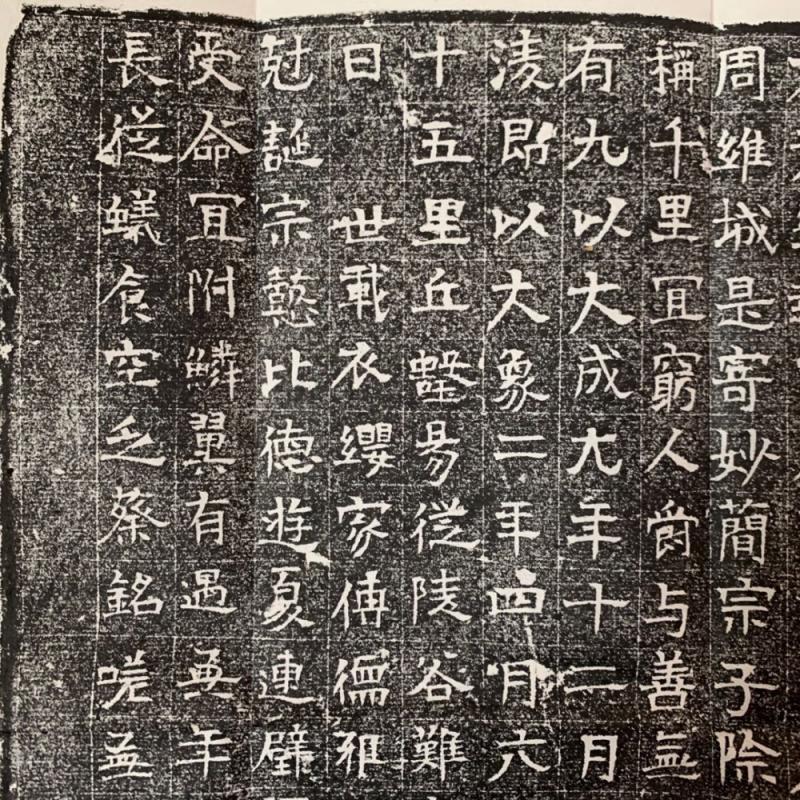 周維城是寄妙簡宗子除
稱千里冝窮人爵与善無
有九以大成元年十二月
淩即以大象二年四月六
十五里丘壑易從陵谷難
曰 世載衣纓家傳儒雅
尅誕宗懿比德遊夏連璧
受命冝附鱗翼有遇無年
長從蟻食空乏蔡銘嗟